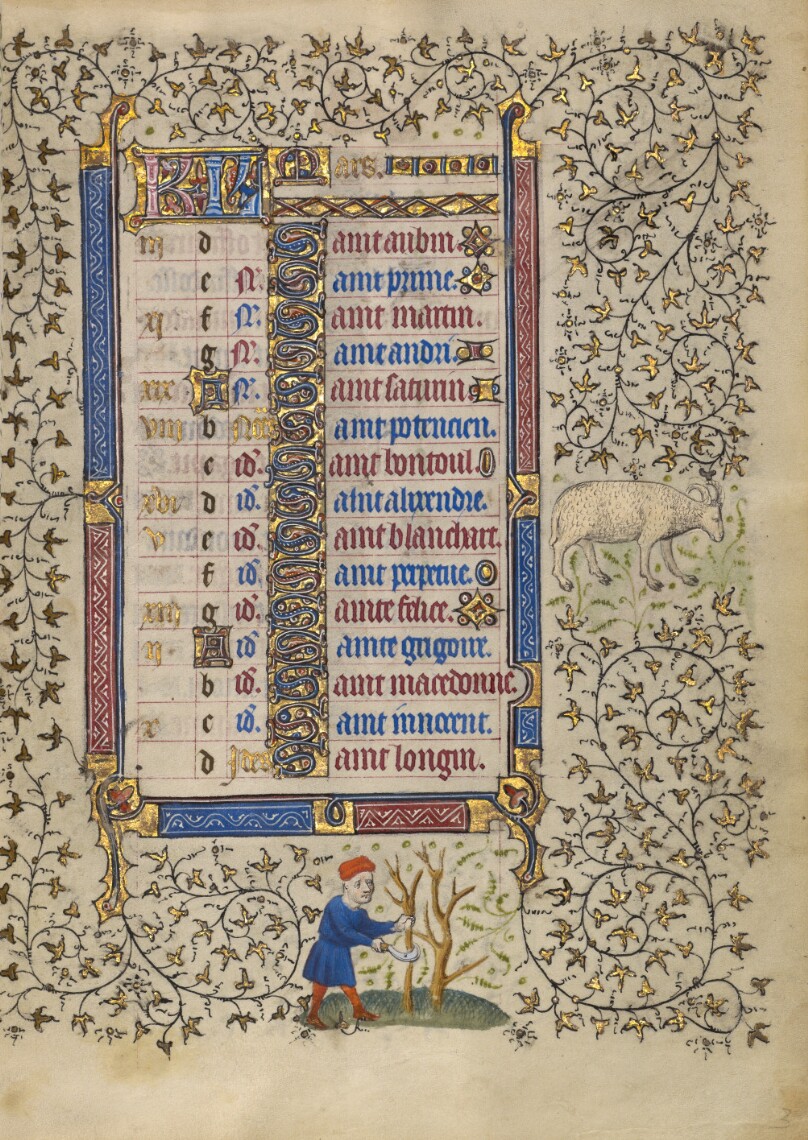 KL Mars.
iii d Saint aubin.
e N. Saint prime.
xi f N. Saint martin.
g N. Saint andri.
xix A N. Saint saturin.
viii b Non Saint potencien.
c id. Saint bontoul.
xvi d id. Saint alixendre.
v e id. Saint blanchart.
f id. Saint perpetue.
xiii g id. Sainte felice.
ii A id Sainte grigoire.
b id. Saint macedonne.
x c id. Saint innocent.
d Ides Saint longin.